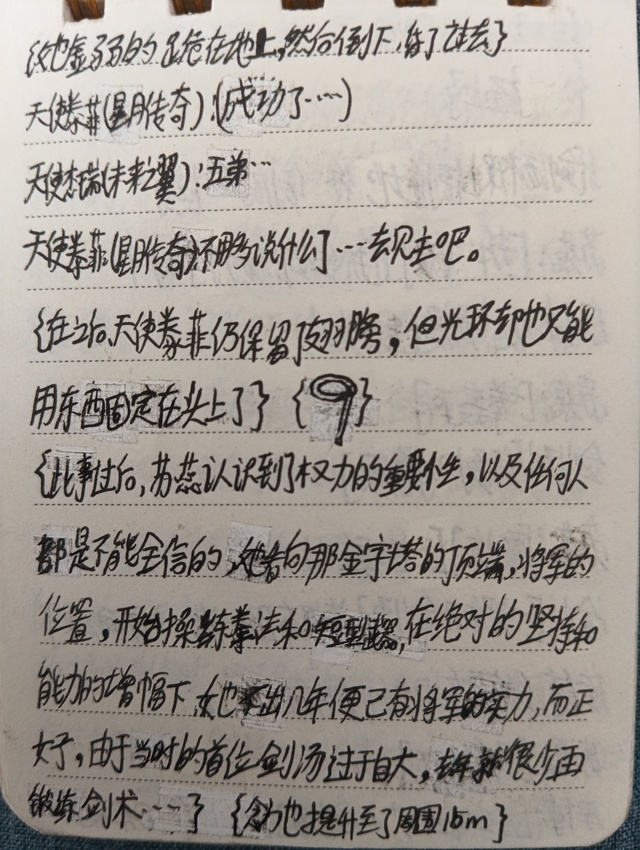 {她虚弱的跪在地上,然后倒下,睡了过去}
天使蒙菲(星月传奇):(成功了……)
天使杰瑞(未来之翼):五弟…
天使蒙菲(星月传奇):不用多说什么了…去见主吧。
{在之后,天使蒙菲仍保留了翅膀,但光环却也只能
用东西固定在头上了} { }
{此事过后,苏蕊认识到了权力的重要性,以及任何人
都是不能全信的,她看向那金字塔的顶端,将军的
位置,开始操练拳法和短型武器,在绝对的坚持和
能力的增幅下,她不出几年便已有将军的实力,而正
好,由于当时的首位剑汤过于自大,去年就很少再
锻练剑术……} {念力也提升至了周围15m}